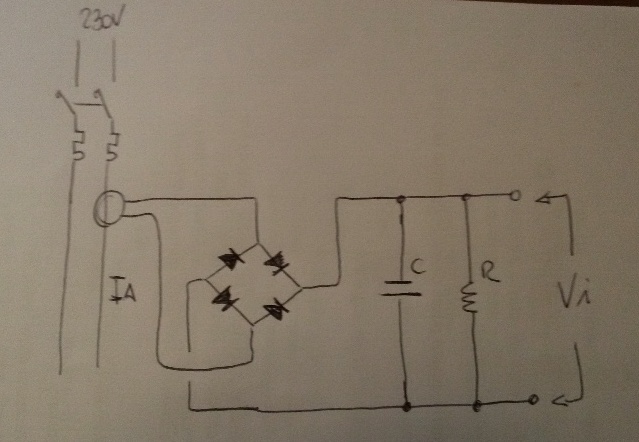 230V
IA
C
R
Vi